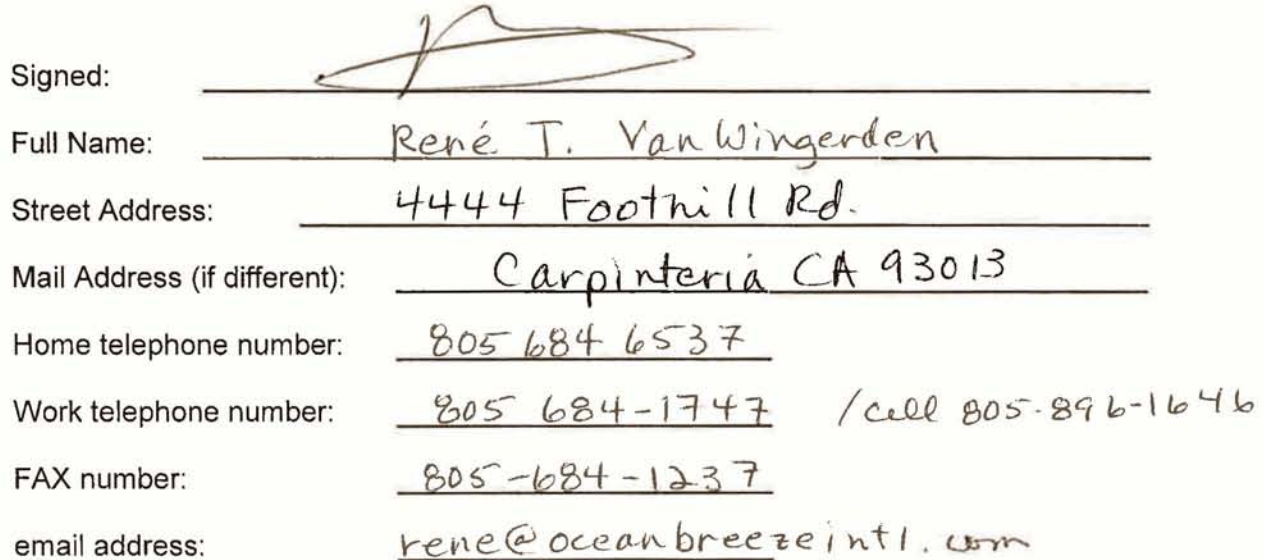 Signed:
Full Name: René T. Van Wingerden
Street Address: 4444 Foothill Rd.
Mail Address (if different): Carpinteria CA 93013
Home telephone number: 805 684 6537
Work telephone number: 805 684-1747 /cell 805-896-1646
FAX number: 805-684-1237
email address: rene@oceanbreezeintl.com